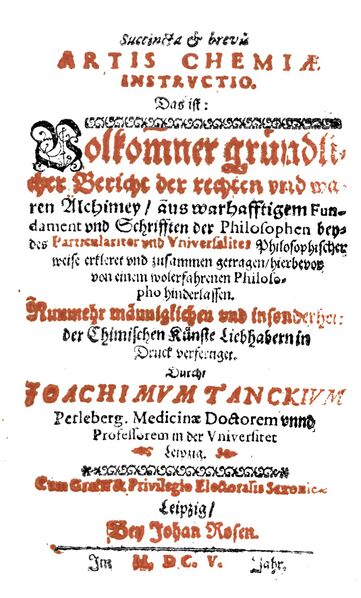 Succincta & brevis
ARTIS CHEMIÆ
INSTRVCTIO.
Das ist:
Volkom̃ner gründli-
cher Bericht der rechten vnd wa-
ren Alchimey/ aus warhafftigem Fun-
dament vnd Schrifften der Philosophen bey-
des Particulariter vnd Vniversaliter Philosophischer
weise erkleret vnd zusammen getragen/ hierbevor
von einem wolerfahrenen Philoso-
pho hinderlassen.
Nunmehr männiglichen vnd insonderheit
der Chimischen Künste Liebhabern in
Druck verfertiget.
Durch
JOACHIMVM TANCKIVM
Perleberg. Medicinæ Doctorem vnnd
Professorem in der Vniversitet
Leipzig.
Cum Gratia & Privilegio Electoralis Saxoniæ
Leipzig/
Bey Johan Rosen.
Im M. DC V. Jahr.